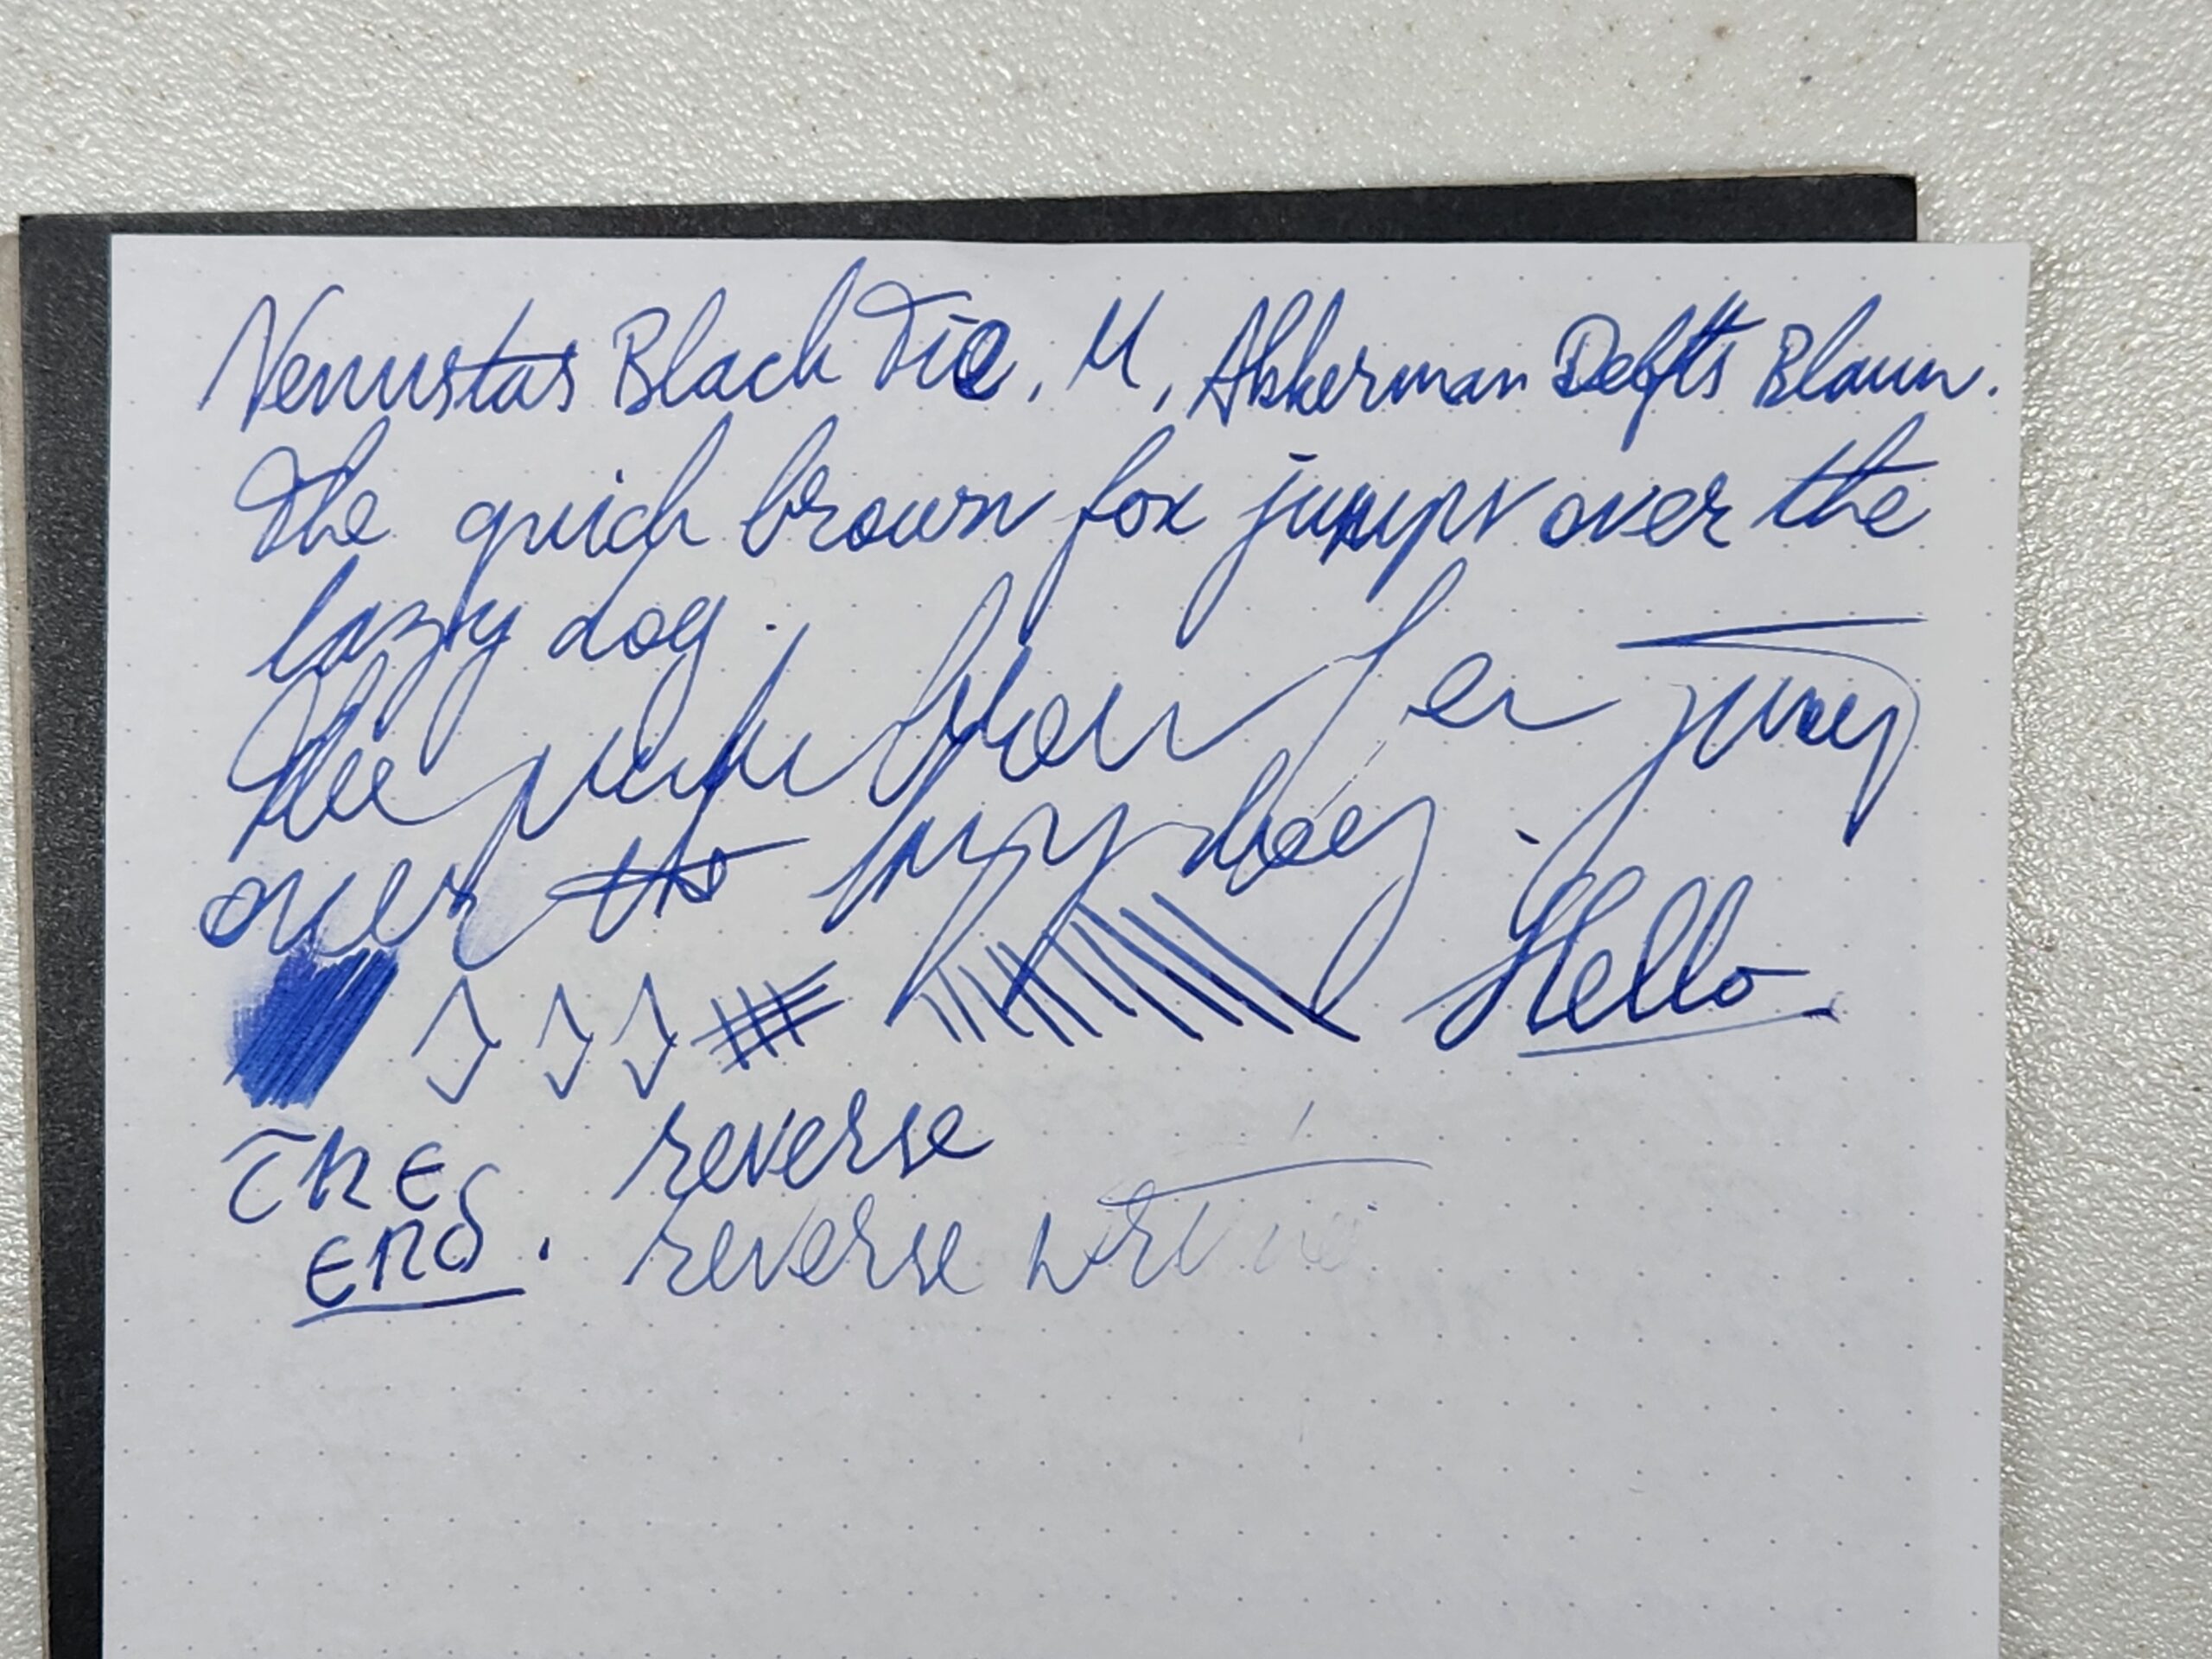 Venustas Black Tie, M, Akkerman Delfts Blauw.
The quick brown fox jumps over the
lazy dog.
The quick brown fox jump
over the lazy dog.
Hello
THE reverse
END. reverse writi